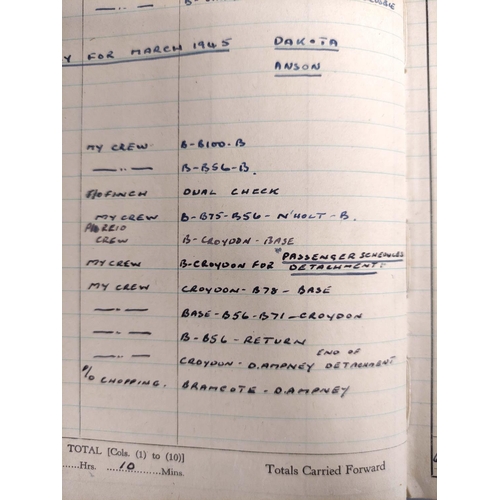 Y FOR MARCH 1945 DAKOTA
ANSON
MY CREW B-B100-B
—"— B-B56-B.
F/O FINCH DUAL CHECK
MY CREW B-B75-B56-N'HOLT-B.
CREW B-CROYDON-BASE
MY CREW B-CROYDON FOR "PASSENGER SCHEDULES
DETACHMENT"
MY CREW CROYDON-B78-BASE
—"— BASE-B56-B71-CROYDON
—"— B-B56-RETURN
—"— CROYDON-D.AMPNEY END OF DETACHMENT
P/O CHOPPING. BRAMCOTE-D.AMPNEY
TOTAL [Cols. (1) to (10)]
......Hrs. 10 ......Mins. Totals Carried Forward